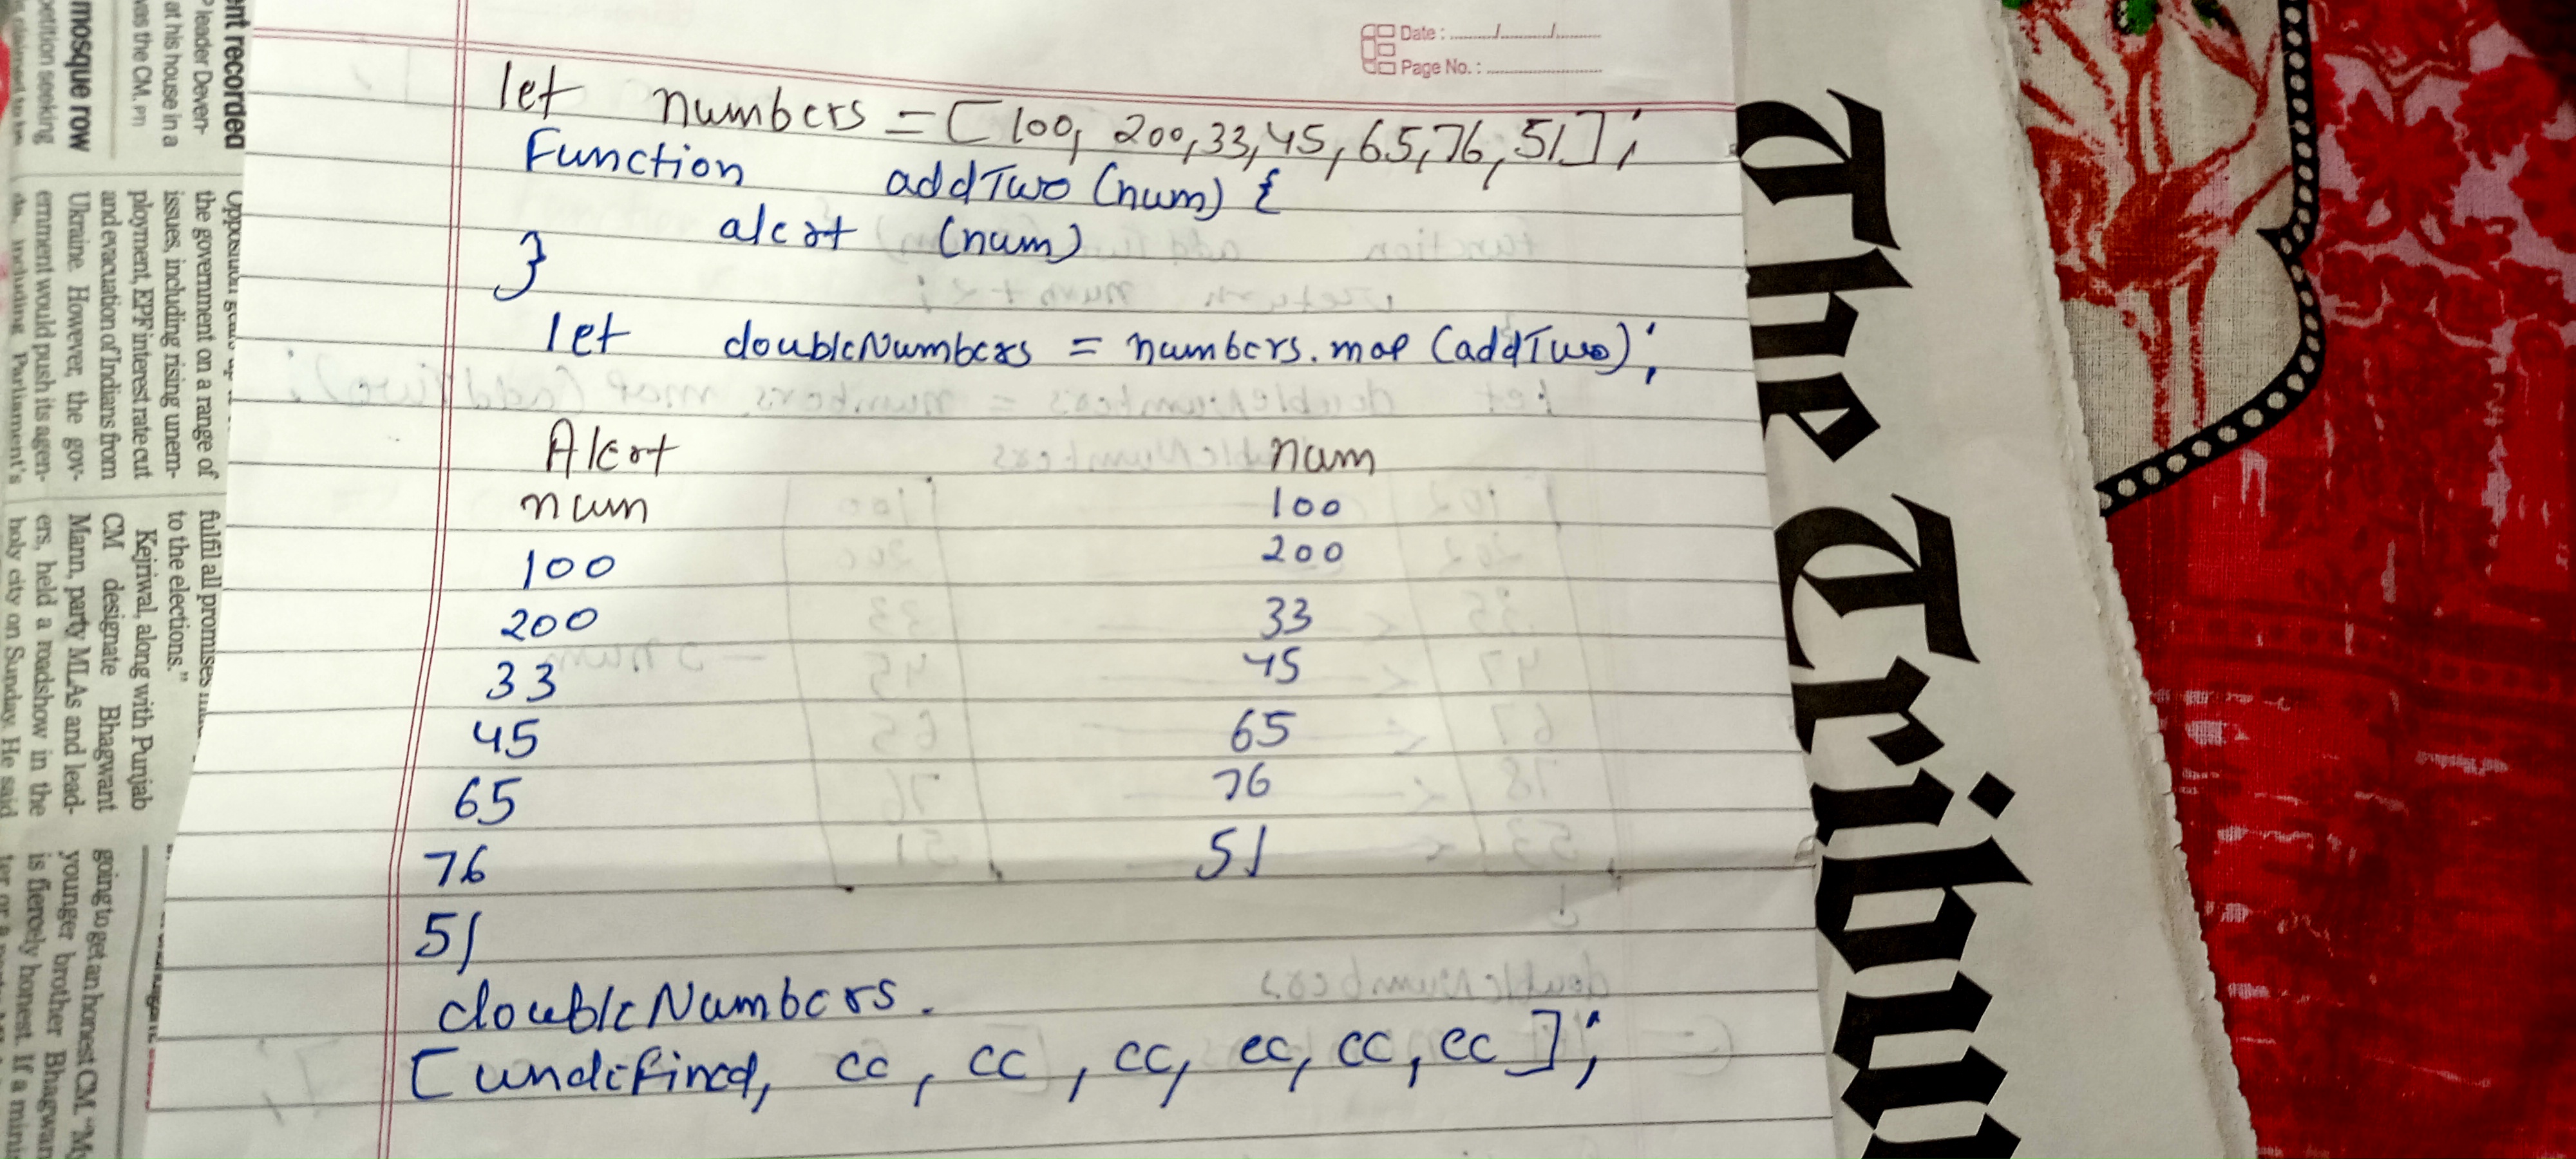 Date : ........./........./.........
Page No. : ........................
let numbers = [100, 200, 33, 45, 65, 76, 51];
Function addTwo (num) {
alert (num)
}
let doubleNumbers = numbers.map (addTwo);
Alert num
num 100
100 200
200 33
33 45
45 65
65 76
76 51
51
doubleNumbers.
[undefined, cc, cc, cc, cc, cc, cc];
The Tribu
ent recorded
P leader Deven-
at his house in a
was the CM. PTI
mosque row
petition seeking
the government on a range of
issues, including rising unem-
ployment, EPF interest rate cut
and evacuation of Indians from
Ukraine. However, the gov-
ernment would push its agen-
da, including Parliament's
fulfil all promises
to the elections."
Kejriwal, along with Punjab
CM designate Bhagwant
Mann, party MLAs and lead-
ers, held a roadshow in the
holy city on Sunday. He said
going to get an honest CM. "My
younger brother Bhagwan
is fiercely honest. If a minis